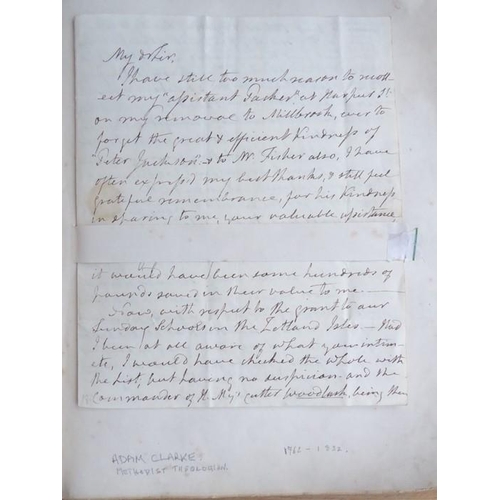 My dr Sir,
I have still too much reason to recoll-
ect my "assistant Packer" at Harpur St
on my removal to Millbrook, ever to
forget the great & efficient kindness of
"Peter Jackson" & to Mr Fisher also, I have
often express'd my best thanks, & still feel
grateful remembrance, for his kindness
in sparing to me, your valuable assistance,
it would have been some hundreds of
pounds saved in their value to me —
Now, with respect to the grant to our
Sunday Schools in the Zetland Isles — Had
I been at all aware of what you intim-
ate, I would have checked the whole with
the List, but having no suspicion and the
Commander of H. Mys cutter Woodlark, being then
ADAM CLARKE:
METHODIST THEOLOGIAN.